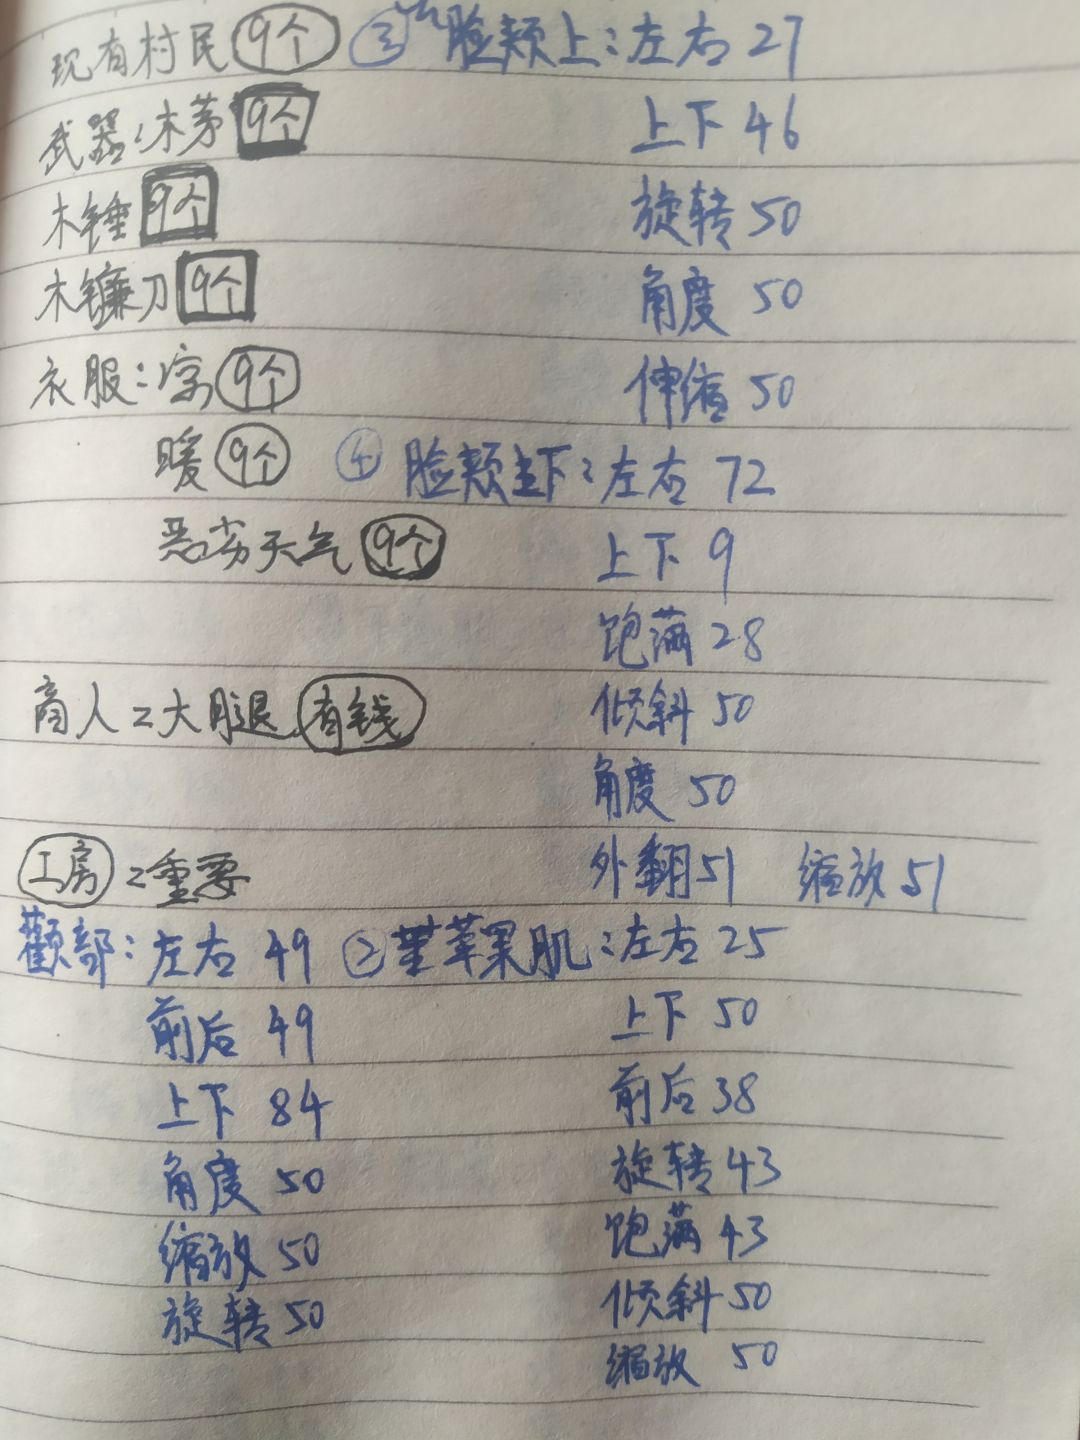 现有村民 9个 ③ 脸颊上：左右 27
武器：木茅 9个 上下 46
木锤 9个 旋转 50
木镰刀 9个 角度 50
衣服：凉 9个 伸缩 50
暖 9个 ④ 脸颊下：左右 72
恶劣天气 9个 上下 9
饱满 28
商人：大腿 有钱 倾斜 50
角度 50
工房：重要 外翻 51 缩放 51
颧部：左右 49 ② 苹果肌：左右 25
前后 49 上下 50
上下 84 前后 38
角度 50 旋转 43
缩放 50 饱满 43
旋转 50 倾斜 50
缩放 50